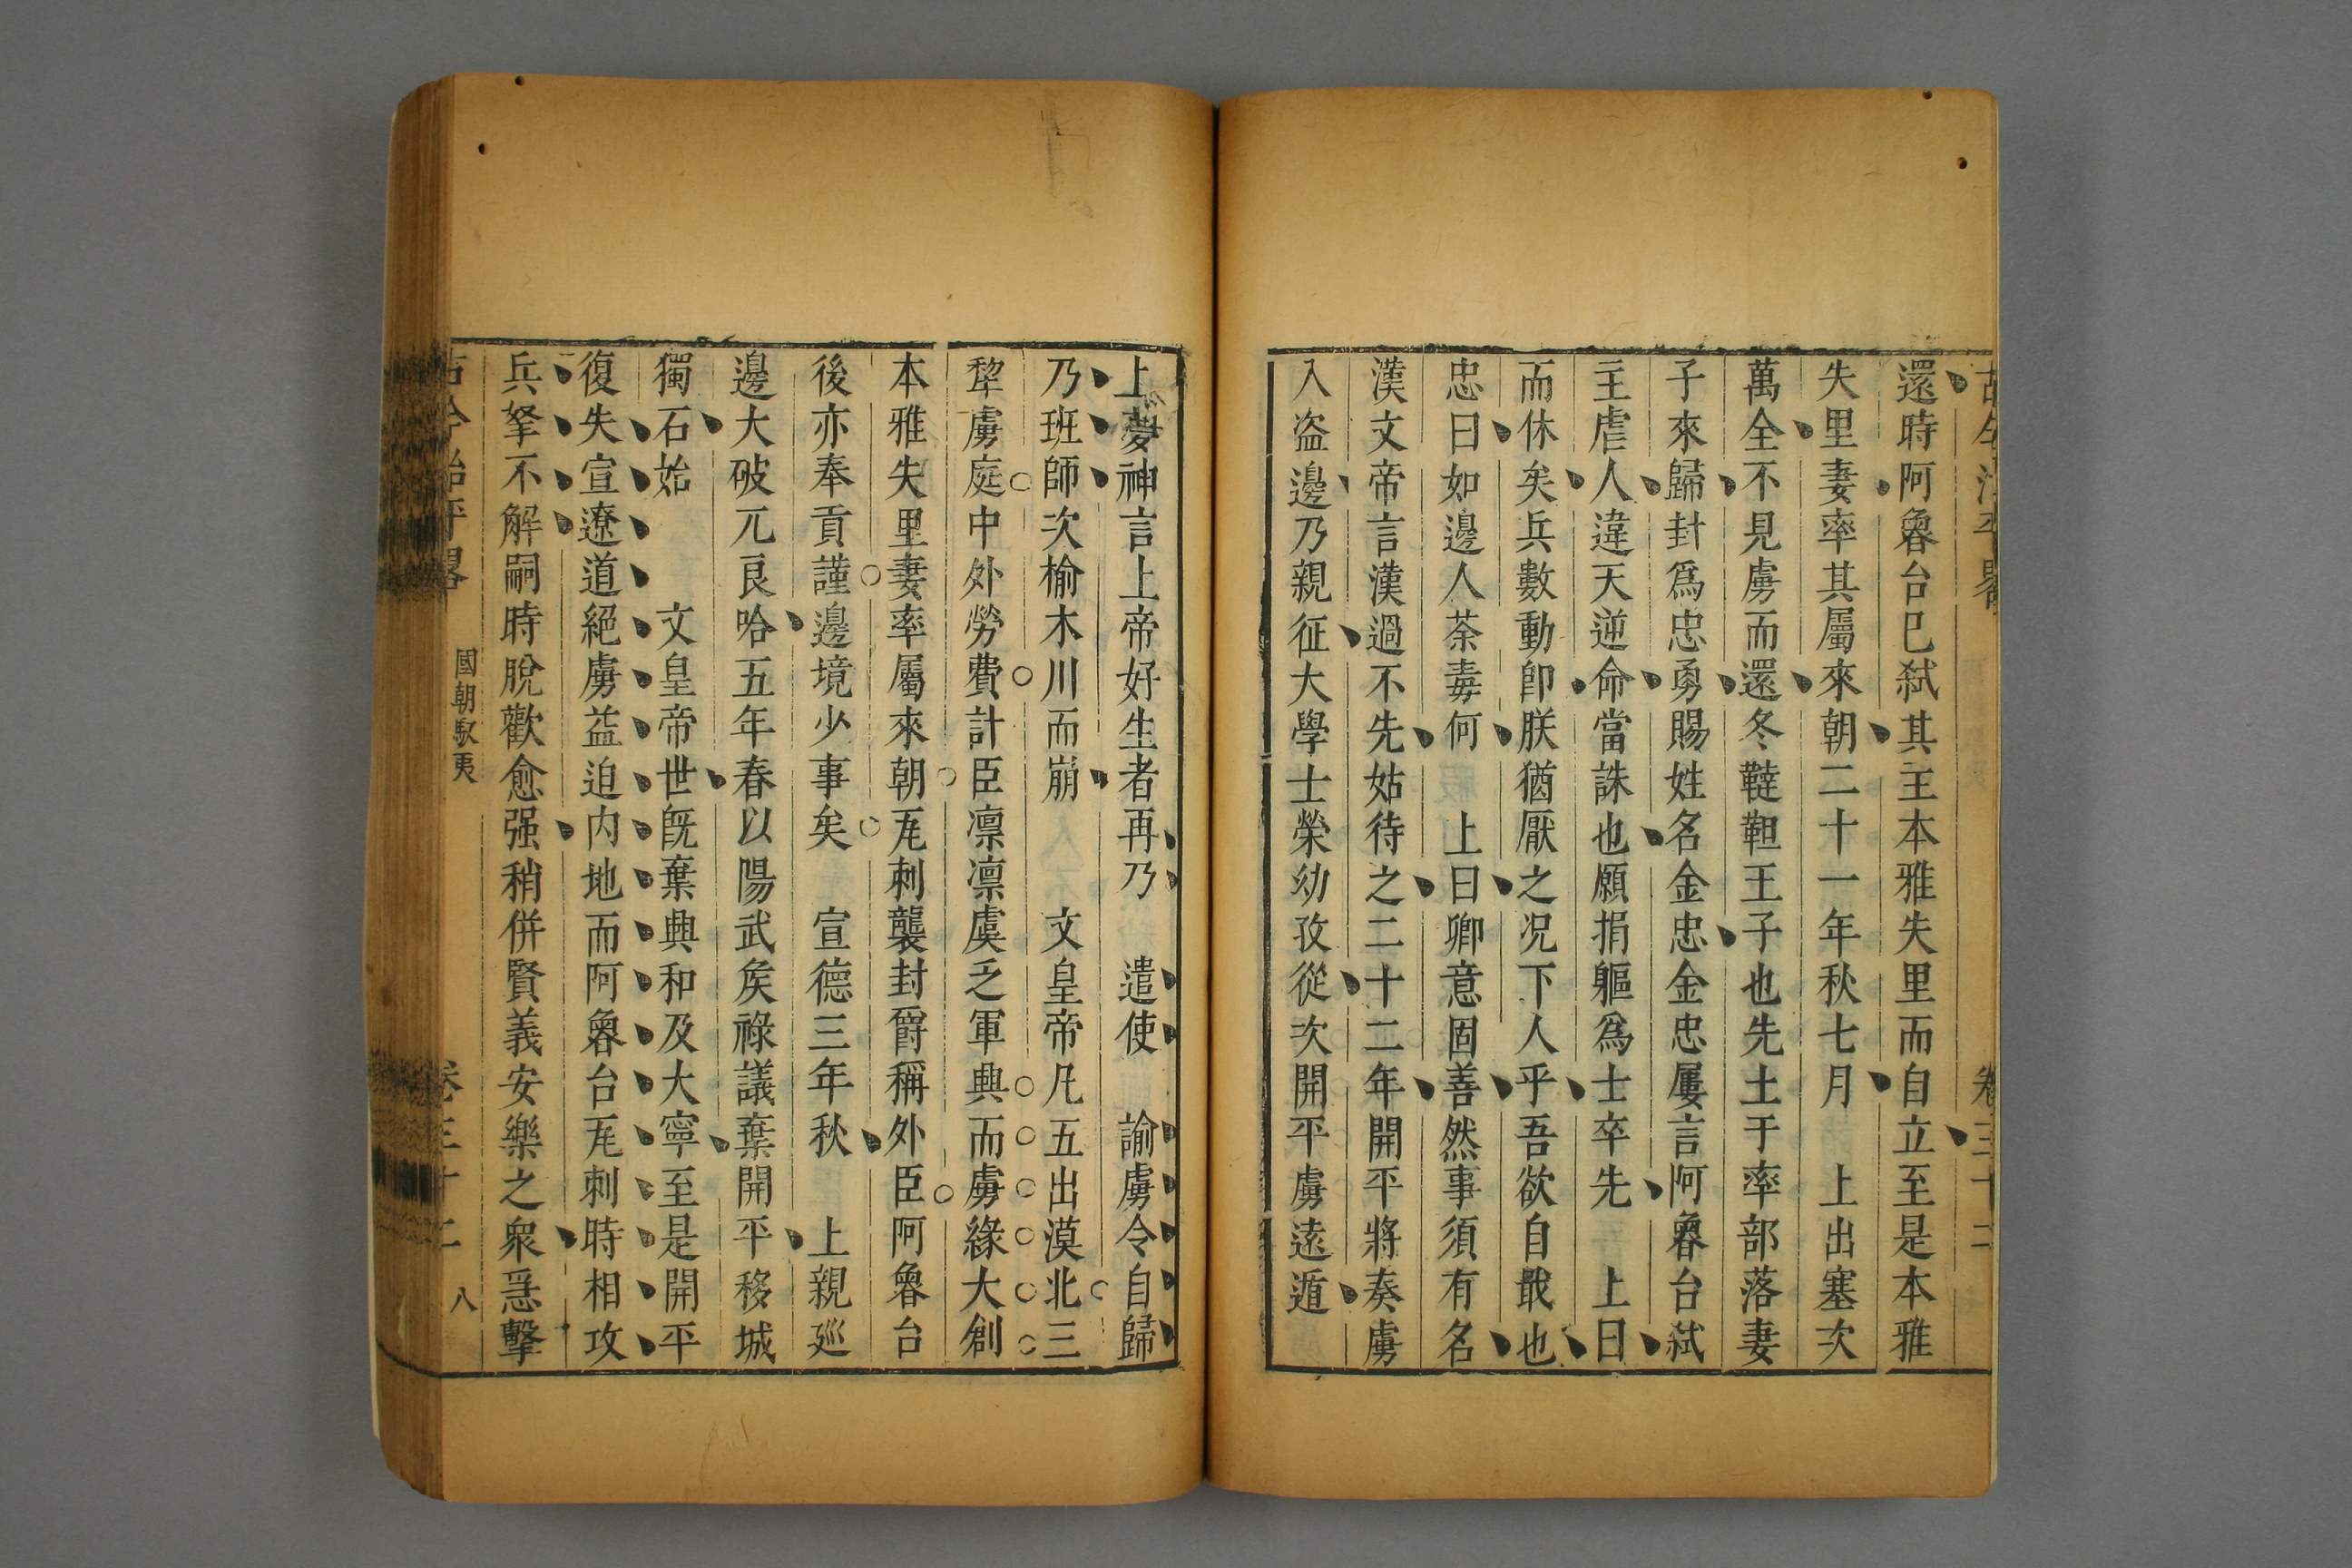 還時阿魯台已弑其主本雅失里而自立至是本雅
失里妻率其屬來朝二十一年秋七月　上出塞次
萬全不見虜而還冬韃靼王子也先土于率部落妻
子來歸封爲忠勇賜姓名金忠金忠屢言阿魯台弑
主虐人違天逆命當誅也願捐軀爲士卒先　上曰
而休矣兵數動卽朕猶厭之况下人乎吾欲自戢也
忠曰如邊人荼毒何　上曰卿意固善然事須有名
漢文帝言漢過不先姑待之二十二年開平將奏虜
入盗邊乃親征大學士榮幼孜從次開平虜遠遁
上夢神言上帝好生者再乃　遣使　諭虜令自歸
乃班師次榆木川而崩　文皇帝凡五出漠北三
犂虜庭中外勞費計臣凛凛虞乏軍興而虜緣大創
本雅失里妻率屬來朝瓦刺襲封爵稱外臣阿魯台
後亦奉貢謹邊境少事矣　宣德三年秋　上親廵
邊大破兀良哈五年春以陽武矦祿議棄開平移城
獨石始　文皇帝世旣棄興和及大寧至是開平
復失宣遼道絕虜益迫内地而阿魯台瓦刺時相攻
兵拏不解嗣時脫歡愈强稍併賢義安樂之衆惎擊
古今治平畧
國朝馭夷
卷三十二
八